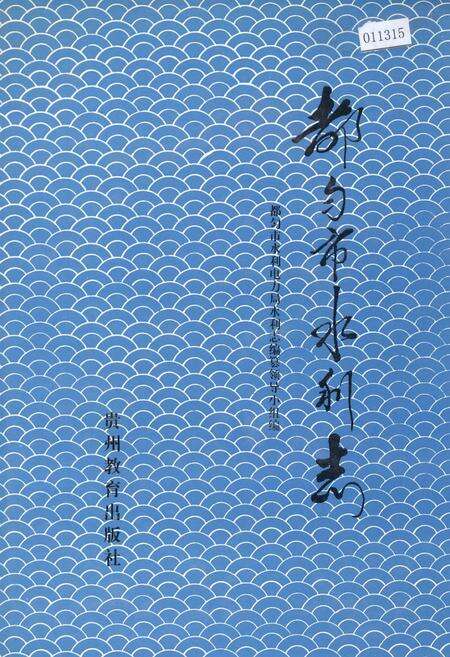 011315
都匀市水利志
都匀市水利电力局水利志编纂领导小组编
贵州教育出版社